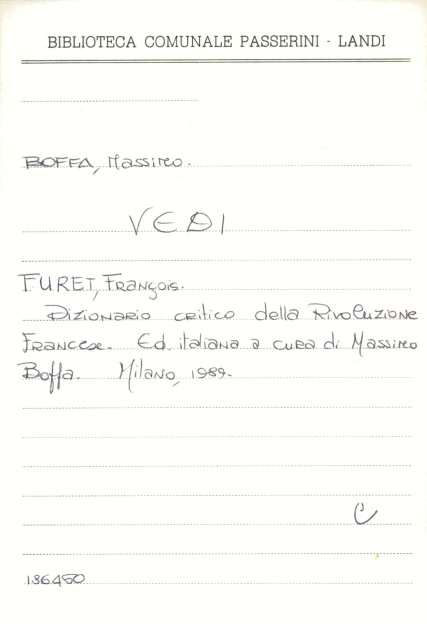 BIBLIOTECA COMUNALE PASSERINI - LANDI
BOFFA, Massimo.
VEDI
FURET, François.
Dizionario critico della Rivoluzione
Francese. Ed. italiana a cura di Massimo
Boffa. Milano, 1989.
C
136450